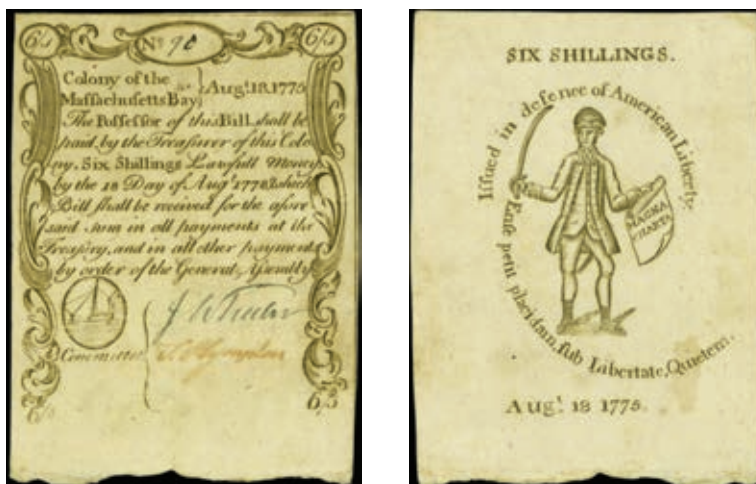 6/s No 90 6/s
Colony of the
Massachusetts Bay } Augt. 18. 1775
The Possessor of this Bill shall be
paid by the Treasurer of this Colo
ny, Six Shillings Lawfull Money
by the 18 Day of Augt 1778 which
Bill shall be received for the afore
said sum in all payments at the
Treasury, and in all other payments
by order of the General Assembly
Committee
6/s 6/s
SIX SHILLINGS.
Issued in defence of American Liberty.
Ense petit placidam, sub Libertate, Quietem.
MAGNA
CHARTA
Augt. 18 1775.